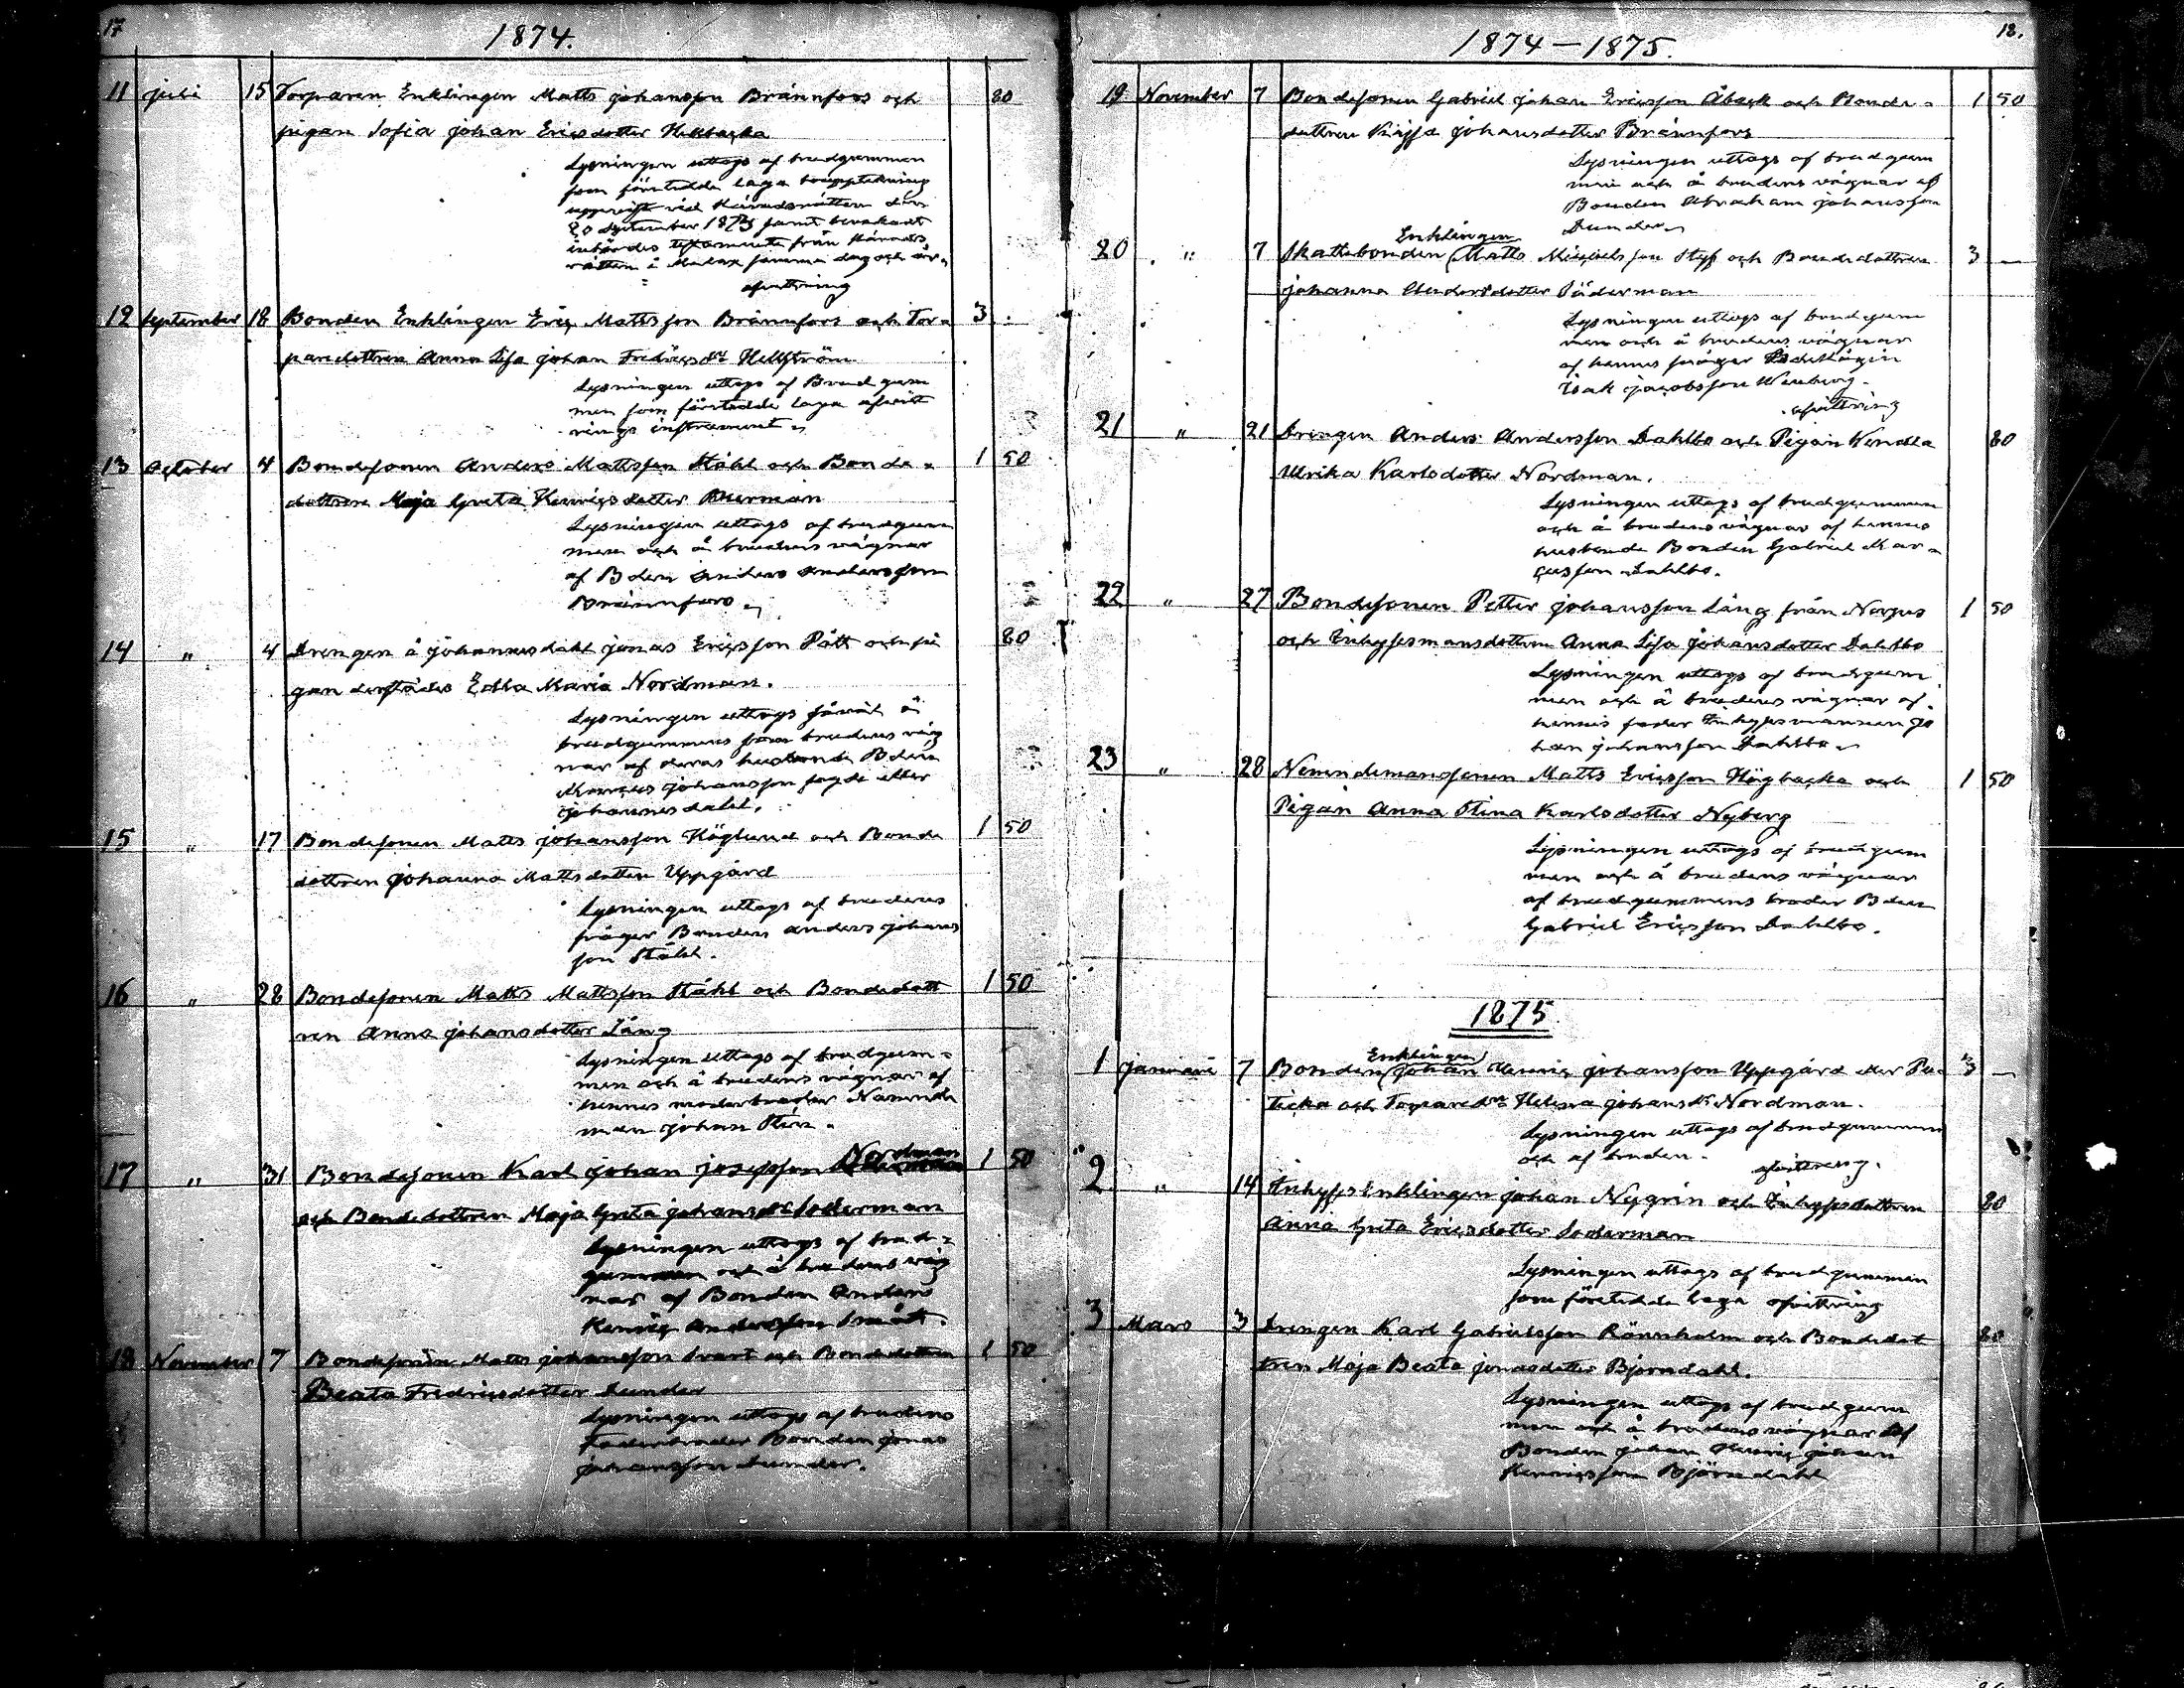 17
1874.
11 Juli 15 Torparen Enklingen Matts Johansson Brännfors och 80
pigan Sofia Johan Ericsdotter Hellbacka
Lysningen uttogs af brudgummen
som företedde laga bouppteckning
uppvist vid Häradsrätten den
20 September 1873 samt bevakadt
inbördes testamente från Härads
rätten i Malax samma dag och år.
afvittring
12 September 18 Bonden Enklingen Eric Mattsson Brännfors och Tor- 3
paredottren Anna Lisa Johan Fredricsdr Hellström
Lysningen uttogs af Brudgum
men som företedde laga afvitt
rings instrument
13 October 4 Bondesonen Anders Mattsson Ståhl och Bonde- 1 50
dottren Maja Greta Henricsdotter Burman
Lysningen uttogs af brudgum
men och å brudens vägnar
af Bden Anders Andersson
Brännfors
14 " 4 Drengen å Johannesdahl Jonas Ericsson Pått och pi 80
gan derstädes Edla Maria Nordman.
Lysningen uttogs såväl å
brudgummens som brudens väg
nar af deras husbonde Bden
Marcus Johansson
Johannesdahl.
15 " 17 Bondesonen Matts Johansson Höglund och Bonde 1 50
dottren Johanna Mattsdotter Uppgård
Lysningen uttogs af brudens
svåger Bonden Anders Johans
son Ståhl.
16 " 28 Bondesonen Matts Mattsson Ståhl och Bondedott 1 50
ren Anna Johansdotter Lång
Lysningen uttogs af brudgum-
men och å brudens vägnar af
hennes moderbroder Nämnde
man Johan
17 " 31 Bondesonen Karl Johan Josephsson Nordman 1 50
och Bondedottren Maja Greta Johansdr Söderman
Lysningen uttogs af brud-
gummen och å brudens väg
nar af Bonden Anders
Henric Andersson Smått.
18 November 7 Bondesonen Matts Johansson Svart och Bondedottren 1 50
Beata Fredricsdotter Dunder
Lysningen uttogs af brudens
Faderbroder Bonden Jonas
Johansson Dunder.
18.
1874—1875.
19 November 7 Bondesonen Gabriel Johan Ericsson Åback och Bonde- 1 50
dottren Kajsa Johansdotter Brännfors
Lysningen uttogs af brudgum
men och å brudens vägnar af
Bonden Abraham Johansson
Dunder
Enklingen
20 " 7 Skattebonden Matts Michelsson Styf och Bondedottren 3 —
Johanna Andersdotter Söderman
Lysningen uttogs af brudgum
men och å brudens vägnar
af hennes svåger
Isak Jacobsson Wenberg.
afvittring
21 " 21 Drengen Anders Andersson Dahlbo och Pigan Kendla 80
Ulrika Karlsdotter Nordman.
Lysningen uttogs af brudgummen
och å brudens vägnar af hennes
husbonde Bonden Gabriel Mar-
cusson Dahlbo.
22 " 27 Bondesonen Petter Johansson Lång från Norrnäs 1 50
och Inhysesmansdottren Anna Lisa Johansdotter Dahlbo
Lysningen uttogs af brudgum
men och å brudens vägnar af
hennes fader Inhysesmannen Jo
han Johansson Dahlbo
23 " 28 Nämndemanssonen Matts Ericsson Högbacka och 1 50
Pigan Anna Stina Karlsdotter Nyberg
Lysningen uttogs af brudgum
men och å brudens vägnar
af brudgummens broder Bden
Gabriel Ericsson Dahlbo.
1875
Enklingen
1 Januari 7 Bonden Johan Henric Johansson Uppgård 3 —
och Torparedr Helena Johansdr Nordman.
Lysningen uttogs af brudgummen
och af bruden.
afvittring.
2 " 14 Inhyses Enklingen Johan Nygrén och Inhysesdottren 80
Anna Greta Ericsdotter Söderman
Lysningen uttogs af brudgummen
som företedde laga afvittring
3 Mars 3 Drengen Karl Gabrielsson Rönnholm och Bondedot 80
tren Maja Beata Jonasdotter Björndahl.
Lysningen uttogs af brudgum
men och å brudens vägnar af
Bonden Johan Henric Johan
Henricsson Björndahl